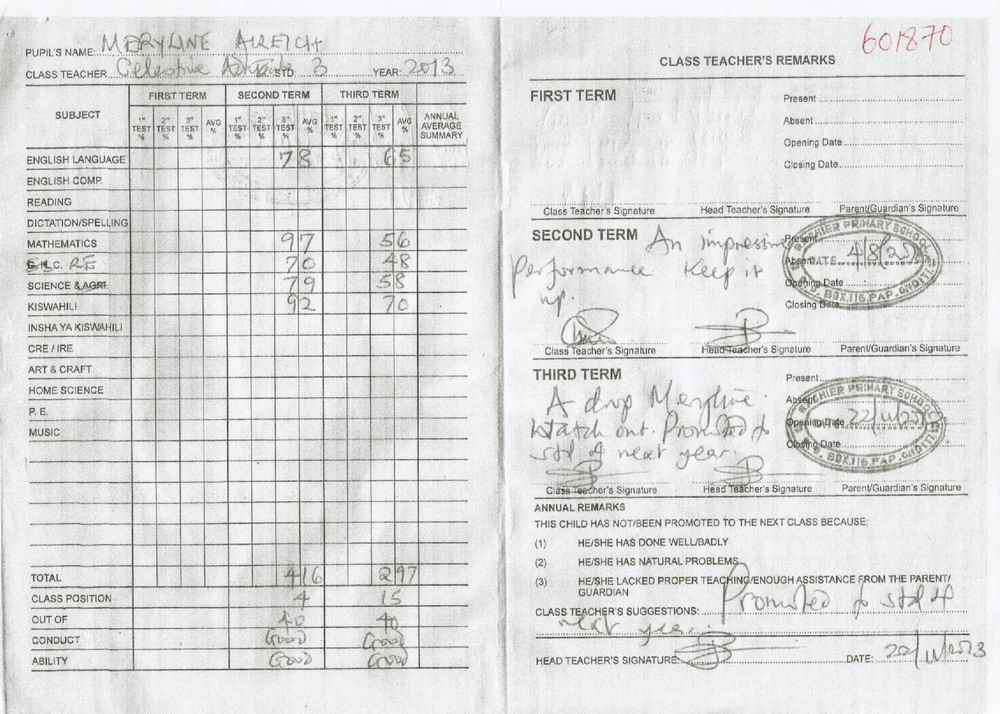 PUPIL'S NAME: MERYLINE
CLASS TEACHER Celestine STD 3 YEAR: 2013
SUBJECT FIRST TERM SECOND TERM THIRD TERM
1ST TEST % 2ND TEST % 3RD TEST % AVG % 1ST TEST % 2ND TEST % 3RD TEST % AVG % 1ST TEST % 2ND TEST % 3RD TEST % AVG % ANNUAL AVERAGE SUMMARY
ENGLISH LANGUAGE 78 65
ENGLISH COMP.
READING
DICTATION/SPELLING
MATHEMATICS 97 56
G.H.C. RE 70 48
SCIENCE & AGRI 79 58
KISWAHILI 92 70
INSHA YA KISWAHILI
CRE / IRE
ART & CRAFT
HOME SCIENCE
P. E.
MUSIC
TOTAL 416 297
CLASS POSITION 4 15
OUT OF 40 40
CONDUCT Good Good
ABILITY Good Good
601870
CLASS TEACHER'S REMARKS
FIRST TERM
Present
Absent
Opening Date
Closing Date
Class Teacher's Signature Head Teacher's Signature Parent/Guardian's Signature
SECOND TERM An impressive
performance Keep it
up.
Present
Absent
Opening Date
Closing Date
PRIMARY SCHOOL
DATE 4/8/2013
BOX 116, PAP-ONDITI
Class Teacher's Signature Head Teacher's Signature Parent/Guardian's Signature
THIRD TERM
A drop Meryline.
Watch out. Promoted to
std 4 next year.
Present
Absent
Opening Date
Closing Date
PRIMARY SCHOOL
22/11/2013
BOX 116, PAP-ONDITI
Class Teacher's Signature Head Teacher's Signature Parent/Guardian's Signature
ANNUAL REMARKS
THIS CHILD HAS NOT/BEEN PROMOTED TO THE NEXT CLASS BECAUSE:
(1) HE/SHE HAS DONE WELL/BADLY
(2) HE/SHE HAS NATURAL PROBLEMS
(3) HE/SHE LACKED PROPER TEACHING/ENOUGH ASSISTANCE FROM THE PARENT/
GUARDIAN
CLASS TEACHER'S SUGGESTIONS: Promoted to std 4
next year.
HEAD TEACHER'S SIGNATURE: DATE: 22/11/2013